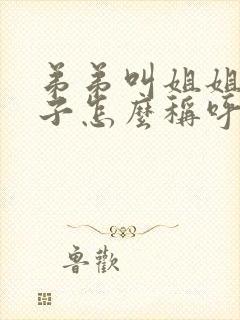 弟弟叫姐姐
子怎麼稱呼
魯歡